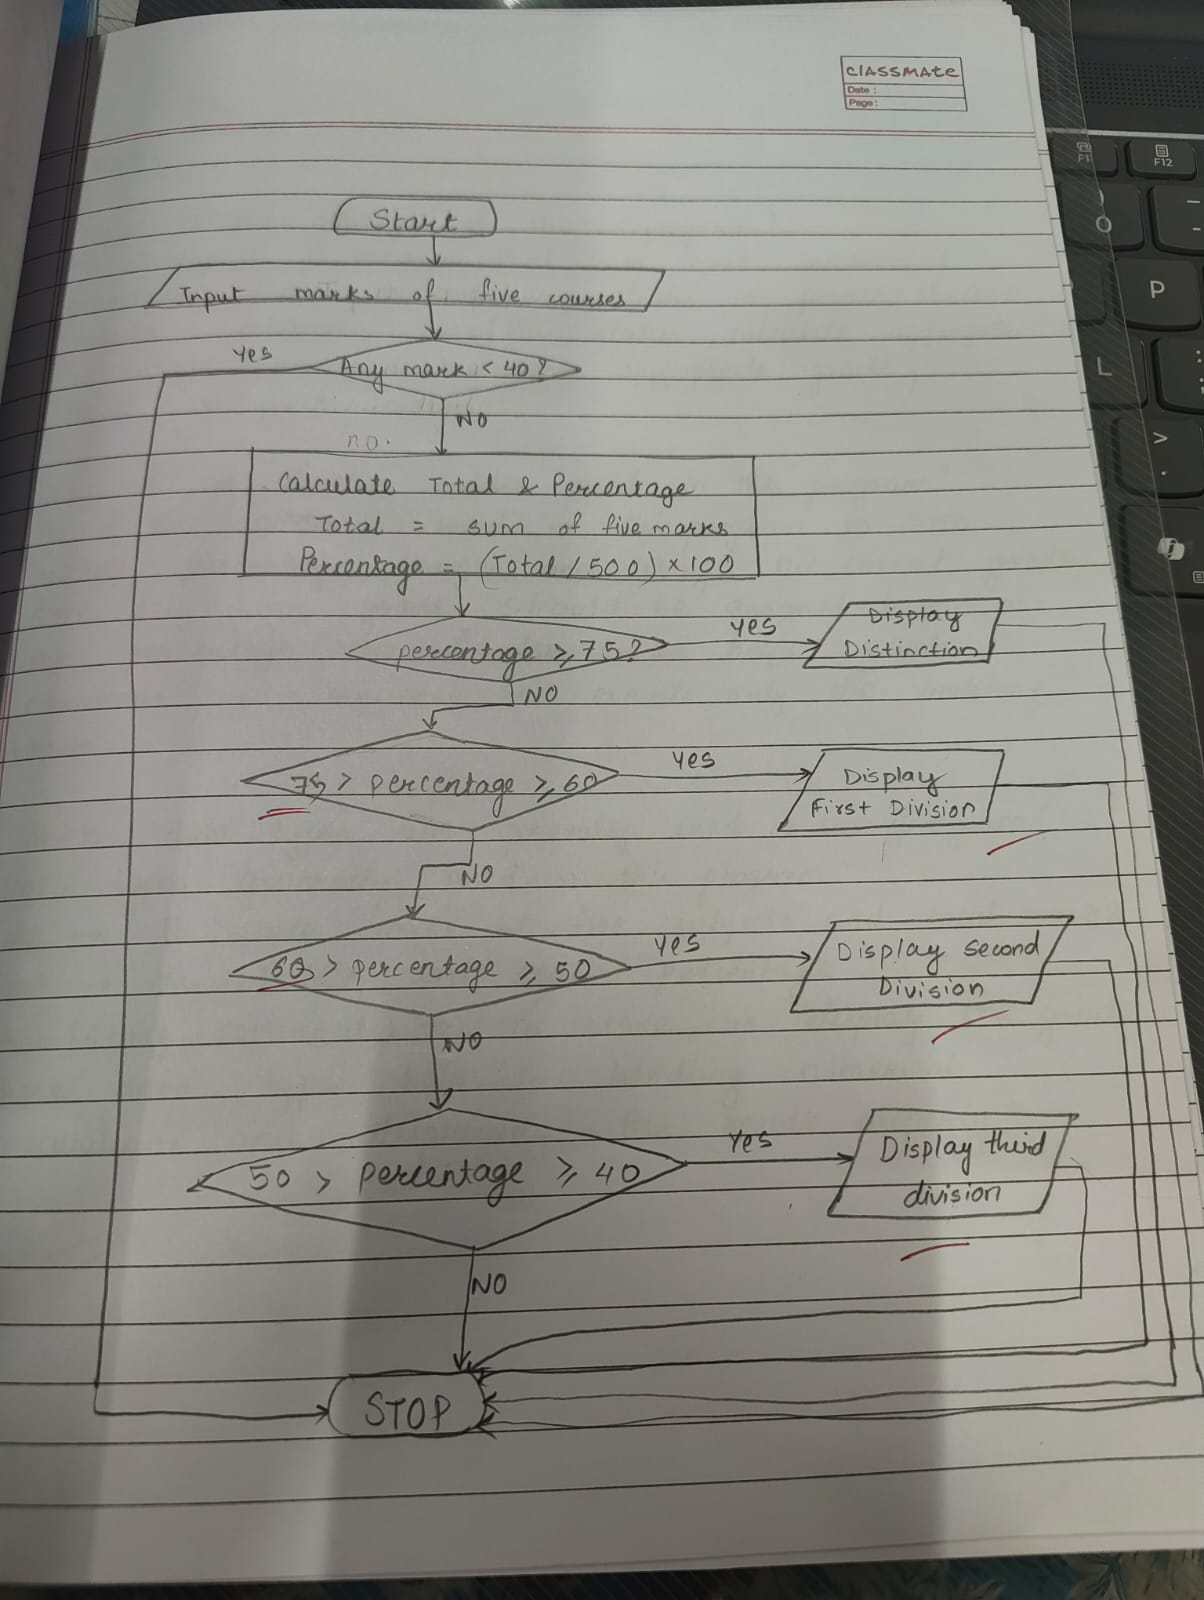 classmate
Date :
Page :
Start
Input marks of five courses
Yes
Any mark < 40?
NO
no.
Calculate Total & Percentage
Total = sum of five marks
Percentage = (Total / 500) × 100
percentage ≥ 75?
Yes
Display
Distinction
NO
75 > percentage ≥ 60
Yes
Display
First Division
NO
60 > percentage ≥ 50
Yes
Display second
Division
NO
50 > percentage ≥ 40
Yes
Display third
division
NO
STOP
F12
P
L